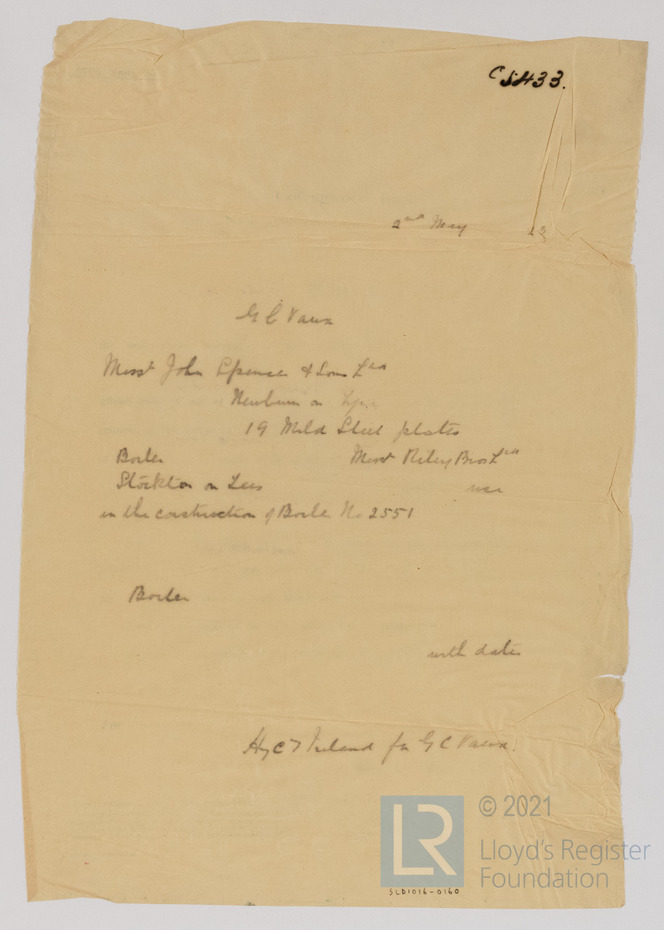 C 5433.
2nd May 23
G C Vaux
Messrs John Spencer & Sons Ltd
Newburn on Tyne
19 Mild Steel plates
Boiler Messrs Riley Bros Ltd
Stockton on Tees use
in the construction of Boiler No 2551
Boiler
with dates
Hy C T Ireland for G C Vaux.
LR © 2021
Lloyd's Register
Foundation
SLD1016-0160